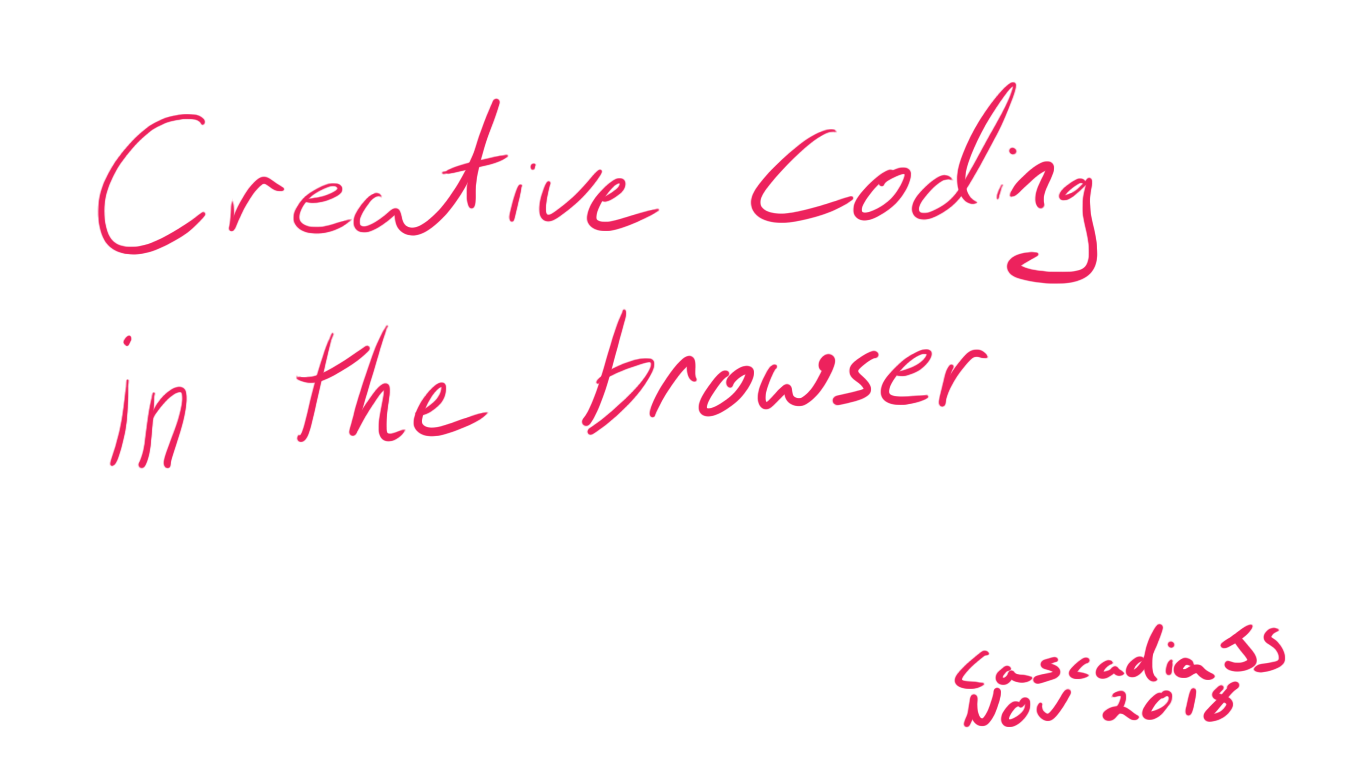 Creative Coding
in the browser
CascadiaJS
Nov 2018